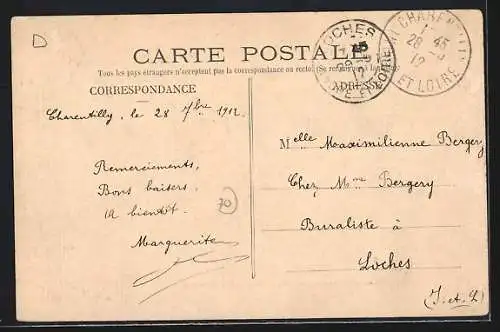 CARTE POSTALE
Tous les pays étrangers n'acceptent pas la correspondance au recto (Se renseigner à la poste)
CORRESPONDANCE
ADRESSE
LOCHES
ET LOIRE
1 45
28
12
ET LOIRE
Charentilly, le 28 7bre 1912
Remerciements,
Bons baisers,
A bientôt.
Marguerite
70
Melle Maximilienne Bergery
Chez Mme Bergery
Buraliste à
Loches
(I. et L)